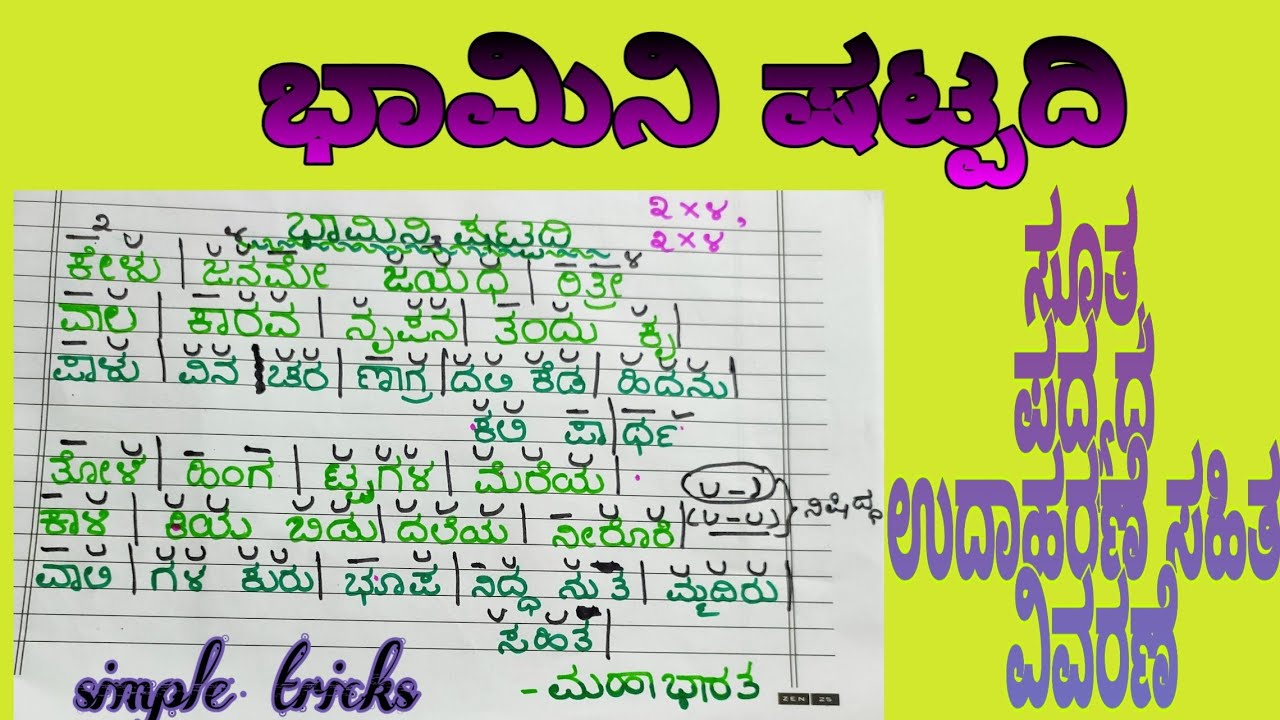 ಭಾಮಿನಿ ಷಟ್ಪದಿ
೨×೪,
೨×೪
ಭಾಮಿನಿ ಷಟ್ಪದಿ
೨ ೪ ೪
ಕೇಳು | ಜನಮೇ ಜಯಧ | ರಿತ್ರೀ
ಪಾಲ | ಕಾರವ | ನೃಪನ | ತಂದು ಕೃ |
ಪಾಳು | ವಿನ | ಚರ | ಣಾಗ್ರ | ದಲಿ ಕೆಡ | ಹಿದನು |
ಕಲಿ ಪಾ | ರ್ಥ
ತೋಳ | ಹಿಂಗ | ಟ್ಟುಗಳ | ಮೆರೆಯ |
ಕಾಳ | ಕಿಯ ಬಿಡು | ದಲೆಯ | ನೀರೊರೆ |
ವಾಲಿ | ಗಳ ಕುರು | ಭೂಪ | ನಿದ್ಧ ನುತೆ | ಮ್ಮದಿರು |
ಸಹಿತ |
(∪ –)
(∪ – ∪) } ನಿಷಿದ್ಧ
- ಮಹಾಭಾರತ
ZEN 25
simple tricks
ಸೂತ್ರ
ಪದ್ಯದ
ಉದಾಹರಣೆ ಸಹಿತ
ವಿವರಣೆ